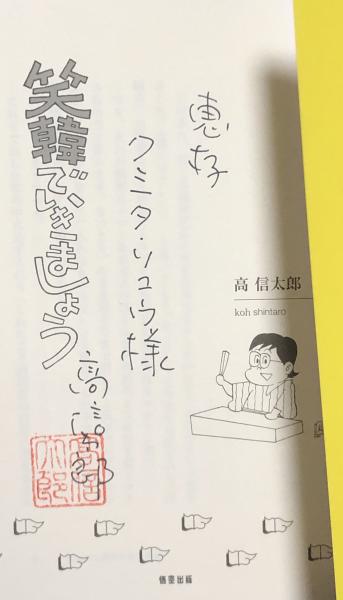 恵存
クミタ・リュウ様
笑韓でいきましょう
高信太郎
高 信太郎
koh shintaro
高信太郎